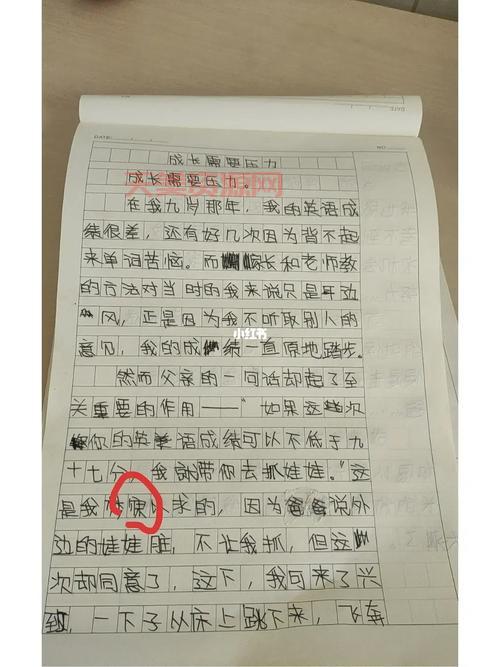 DATE:
NO
DATE
成长需要压力
成长需要压力。
在我九岁那年，我的英语成
绩很差，还有好几次因为背不起
来单词苦恼。而家长和老师教
的方法对当时的我来说只是耳边
风，正是因为我不听取别人的
意见，我的成绩一直原地踏步。
小红书
然而父亲的一句话却起了至
关重要的作用——“如果这次
你的英语成绩可以不低于九
十七分，我就带你去抓娃娃。”这
是我梦寐以求的，因为爸爸说外
边的娃娃脏，不让我抓，但这
次却同意了，这下，我可来了兴
致，一下子从床上跳下来，飞奔